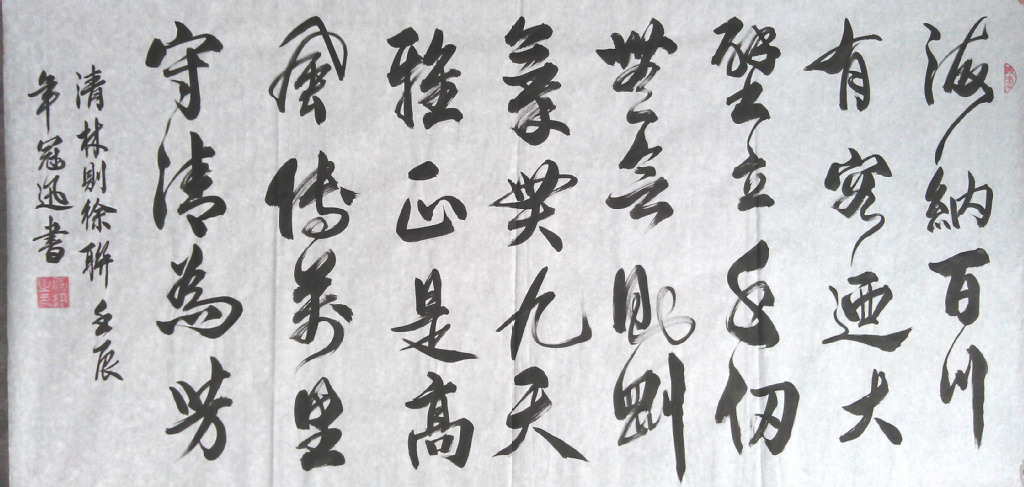 海納百川
有容迺大
壁立千仞
無欲則剛
氣九天
雅正是高
風傳萬里
守清為芳
清林則徐聯壬辰
年冠迅書